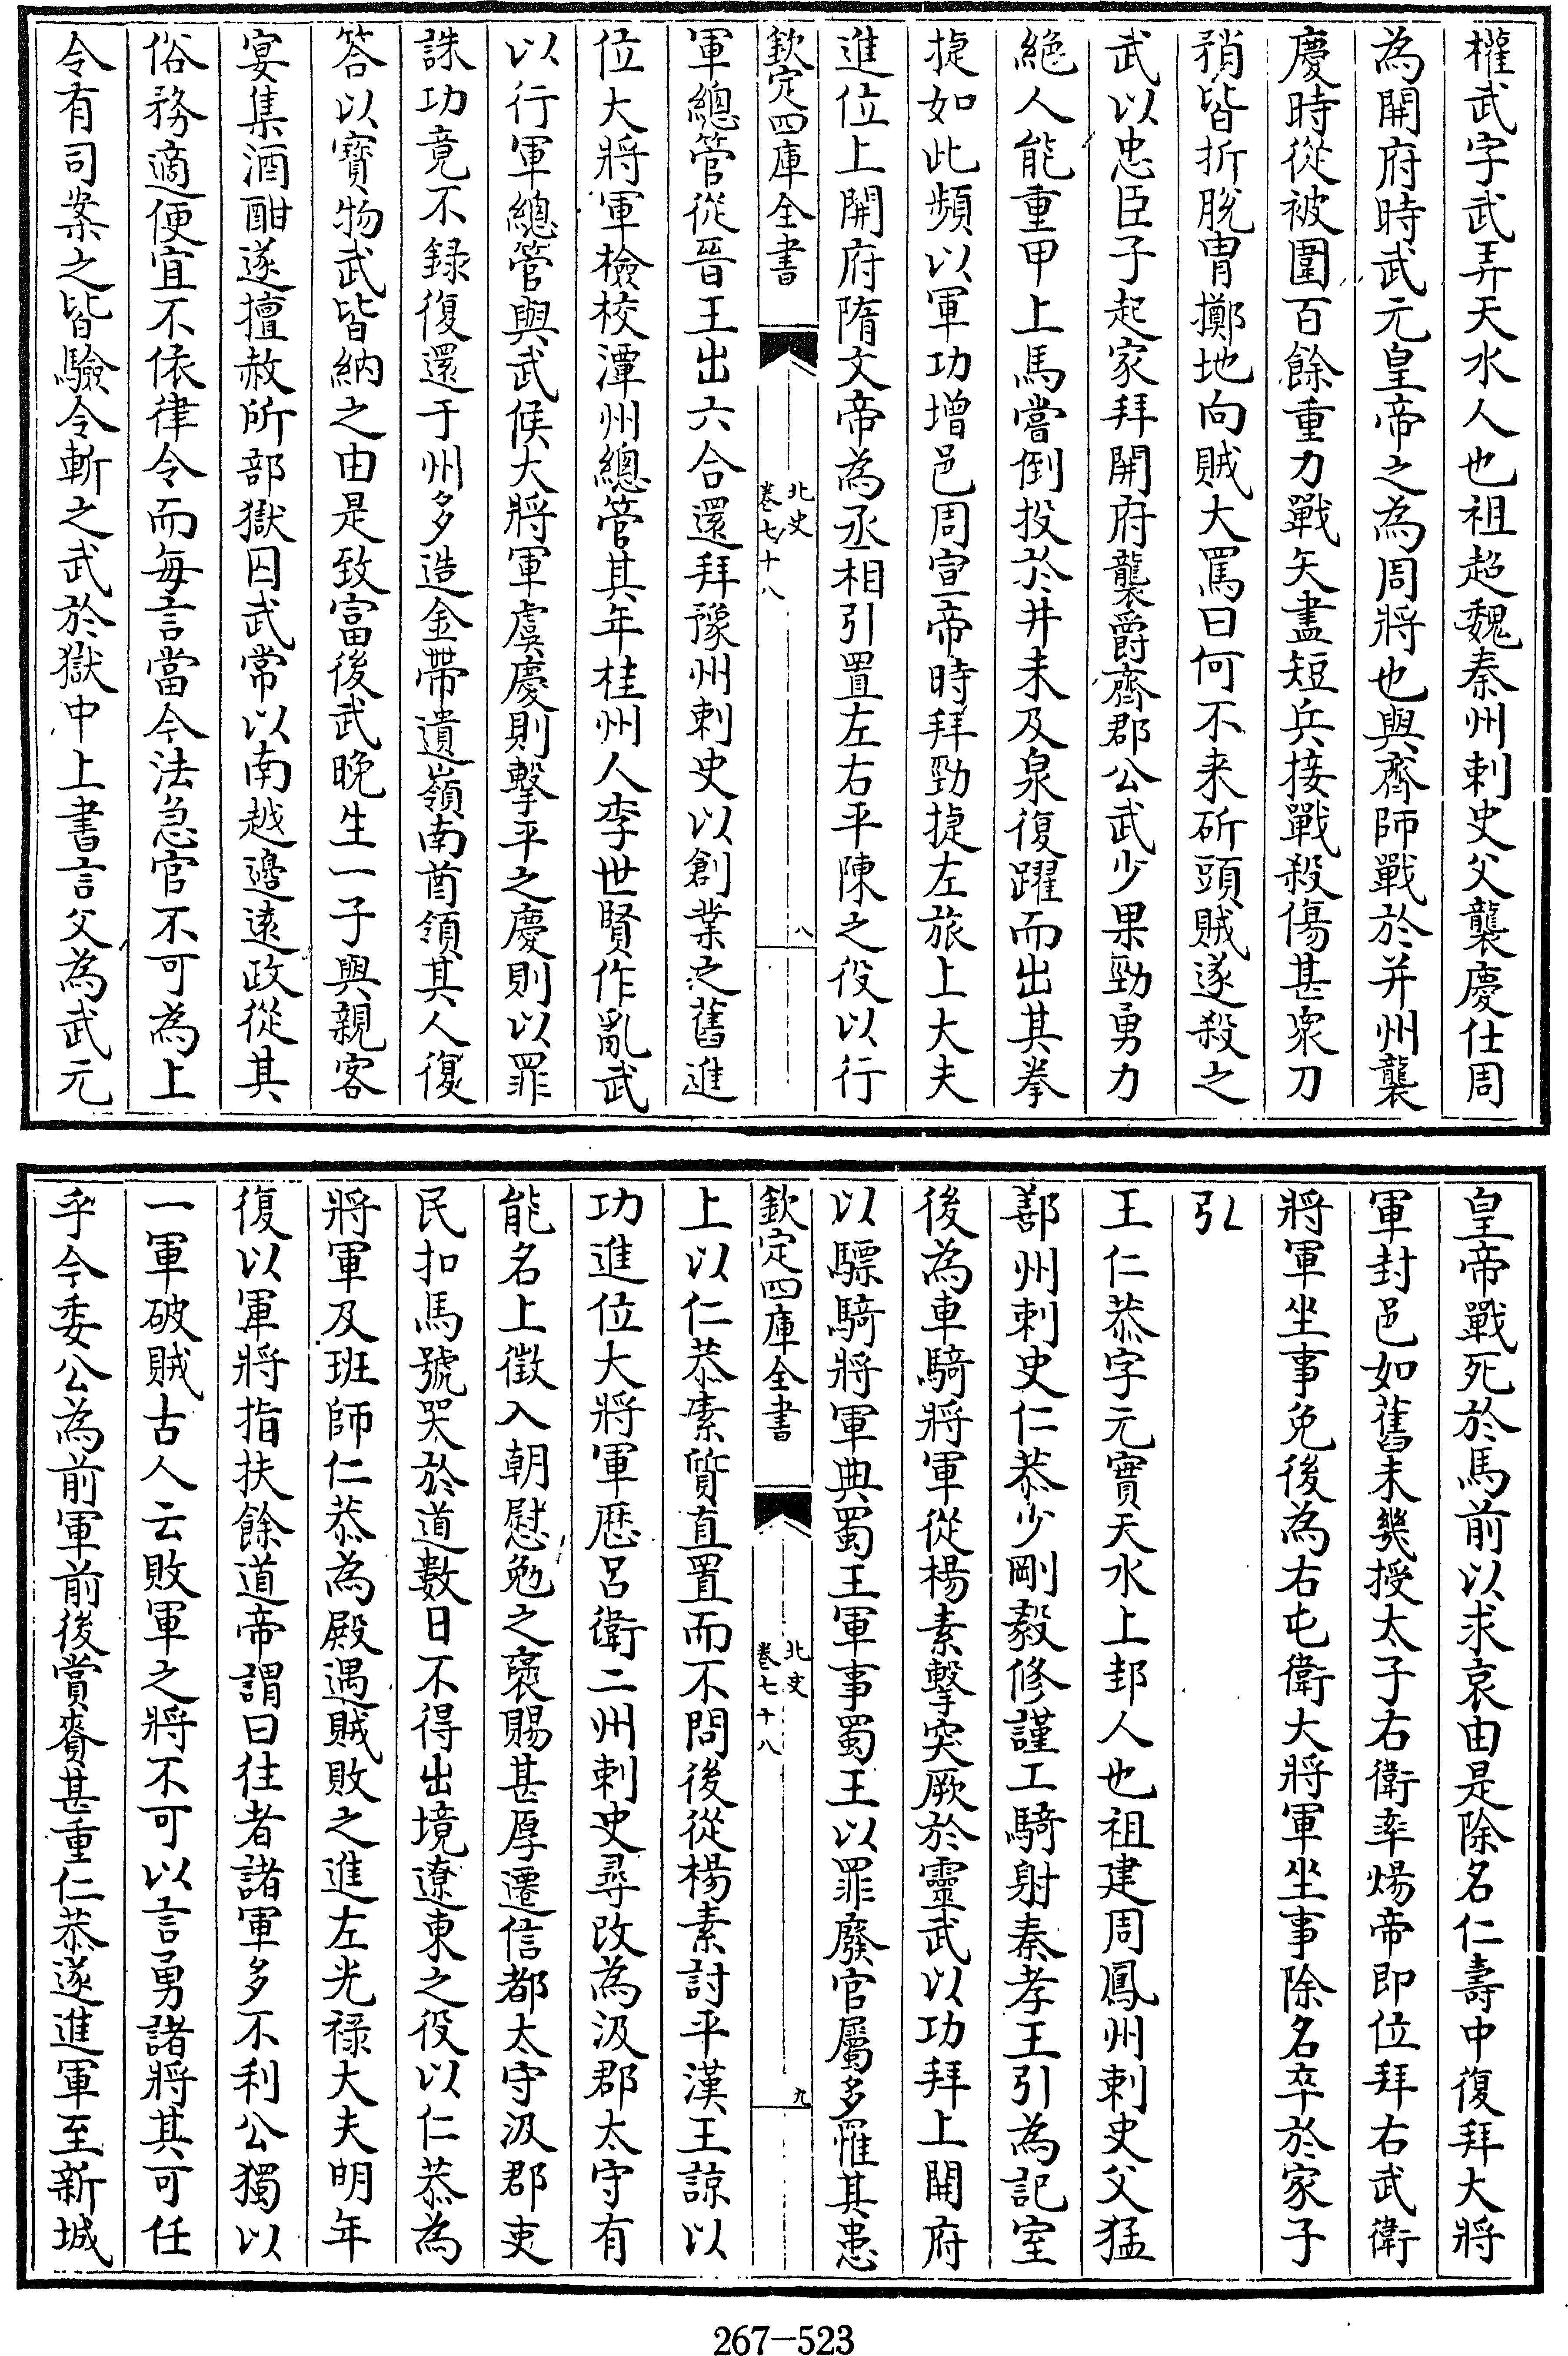 權武字武弄天水人也祖超魏秦州刺史父襲慶仕周
為開府時武元皇帝之為周將也與齊師戰於并州襲
慶時從被圍百餘重力戰矢盡短兵接戰殺傷甚衆刀
矟皆折脫冑擲地向賊大罵曰何不来斫頭賊遂殺之
武以忠臣子起家拜開府襲爵齊郡公武少果勁勇力
絶人能重甲上馬嘗倒投於井未及泉復躍而出其拳
捷如此頻以軍功增邑周宣帝時拜勁捷左旅上大夫
進位上開府隋文帝為丞相引置左右平陳之役以行
欽定四庫全書
北史
卷七十八
八
軍總管從晉王出六合還拜豫州刺史以創業之舊進
位大將軍檢校潭州總管其年桂州人李世賢作亂武
以行軍總管與武候大將軍虞慶則擊平之慶則以罪
誅功竟不録復還于州多造金帶遺嶺南酋領其人復
答以寶物武皆納之由是致富後武晚生一子與親客
宴集酒酣遂擅赦所部獄囚武常以南越邊遠政從其
俗務適便宜不依律令而每言當今法急官不可為上
令有司案之皆驗令斬之武於獄中上書言父為武元
皇帝戰死於馬前以求哀由是除名仁壽中復拜大將
軍封邑如舊未幾授太子右衛率煬帝即位拜右武衛
將軍坐事免後為右屯衛大將軍坐事除名卒於家子
弘
王仁恭字元實天水上邽人也祖建周鳳州刺史父猛
鄯州刺史仁恭少剛毅修謹工騎射秦孝王引為記室
後為車騎將軍從楊素擊突厥於靈武以功拜上開府
以驃騎將軍典蜀王軍事蜀王以罪廢官屬多罹其患
欽定四庫全書
北史
卷七十八
九
上以仁恭素質直置而不問後從楊素討平漢王諒以
功進位大將軍歴呂衛二州刺史尋改為汲郡太守有
能名上徵入朝慰勉之襃賜甚厚遷信都太守汲郡吏
民扣馬號哭於道數日不得出境遼東之役以仁恭為
將軍及班師仁恭為殿遇賊敗之進左光禄大夫明年
復以軍將指扶餘道帝謂曰往者諸軍多不利公獨以
一軍破賊古人云敗軍之將不可以言勇諸將其可任
乎今委公為前軍前後賞賚甚重仁恭遂進軍至新城
267-523